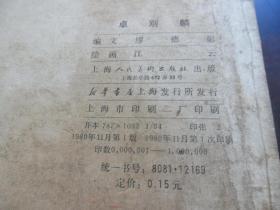 卓别麟
编文 廖德
绘画 江云
上海人民美术出版社出版
上海长乐路672弄33号
新华书店上海发行所发行
上海市印刷二厂印刷
开本 787×1092 1/64 印张 2
1980年11月第1版 1980年11月第1次印刷
印数 0,000,001—1,000,000
统一书号:8081·12169
定价:0.15元